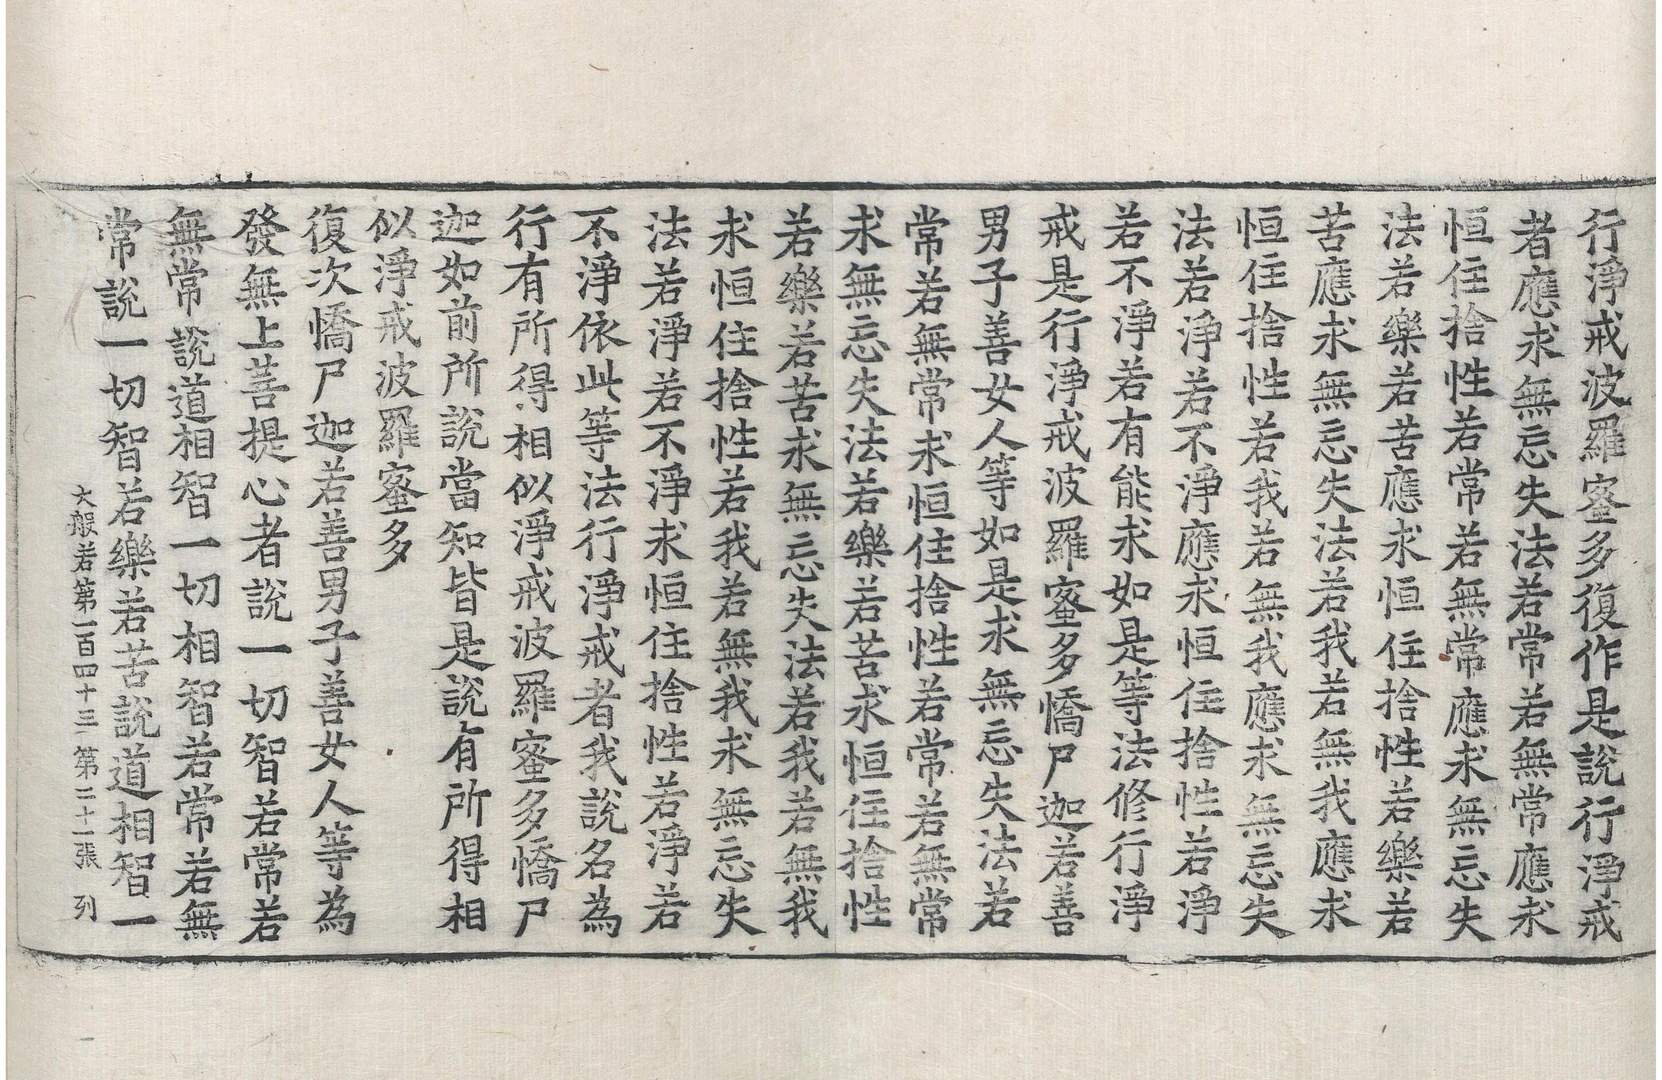 行淨戒波羅蜜多復作是說行淨戒
者應求無忘失法若常若無常應求
恒住捨性若常若無常應求無忘失
法若樂若苦應求恒住捨性若樂若
苦應求無忘失法若我若無我應求
恒住捨性若我若無我應求無忘失
法若淨若不淨應求恒住捨性若淨
若不淨若有能求如是等法修行淨
戒是行淨戒波羅蜜多憍尸迦若善
男子善女人等如是求無忘失法若
常若無常求恒住捨性若常若無常
求無忘失法若樂若苦求恒住捨性
若樂若苦求無忘失法若我若無我
求恒住捨性若我若無我求無忘失
法若淨若不淨求恒住捨性若淨若
不淨依此等法行淨戒者我說名為
行有所得相似淨戒波羅蜜多憍尸
迦如前所說當知皆是說有所得相
似淨戒波羅蜜多
復次憍尸迦若善男子善女人等為
發無上菩提心者說一切智若常若
無常說道相智一切相智若常若無
常說一切智若樂若苦說道相智一
大般若第一百四十三 第二十一張 列